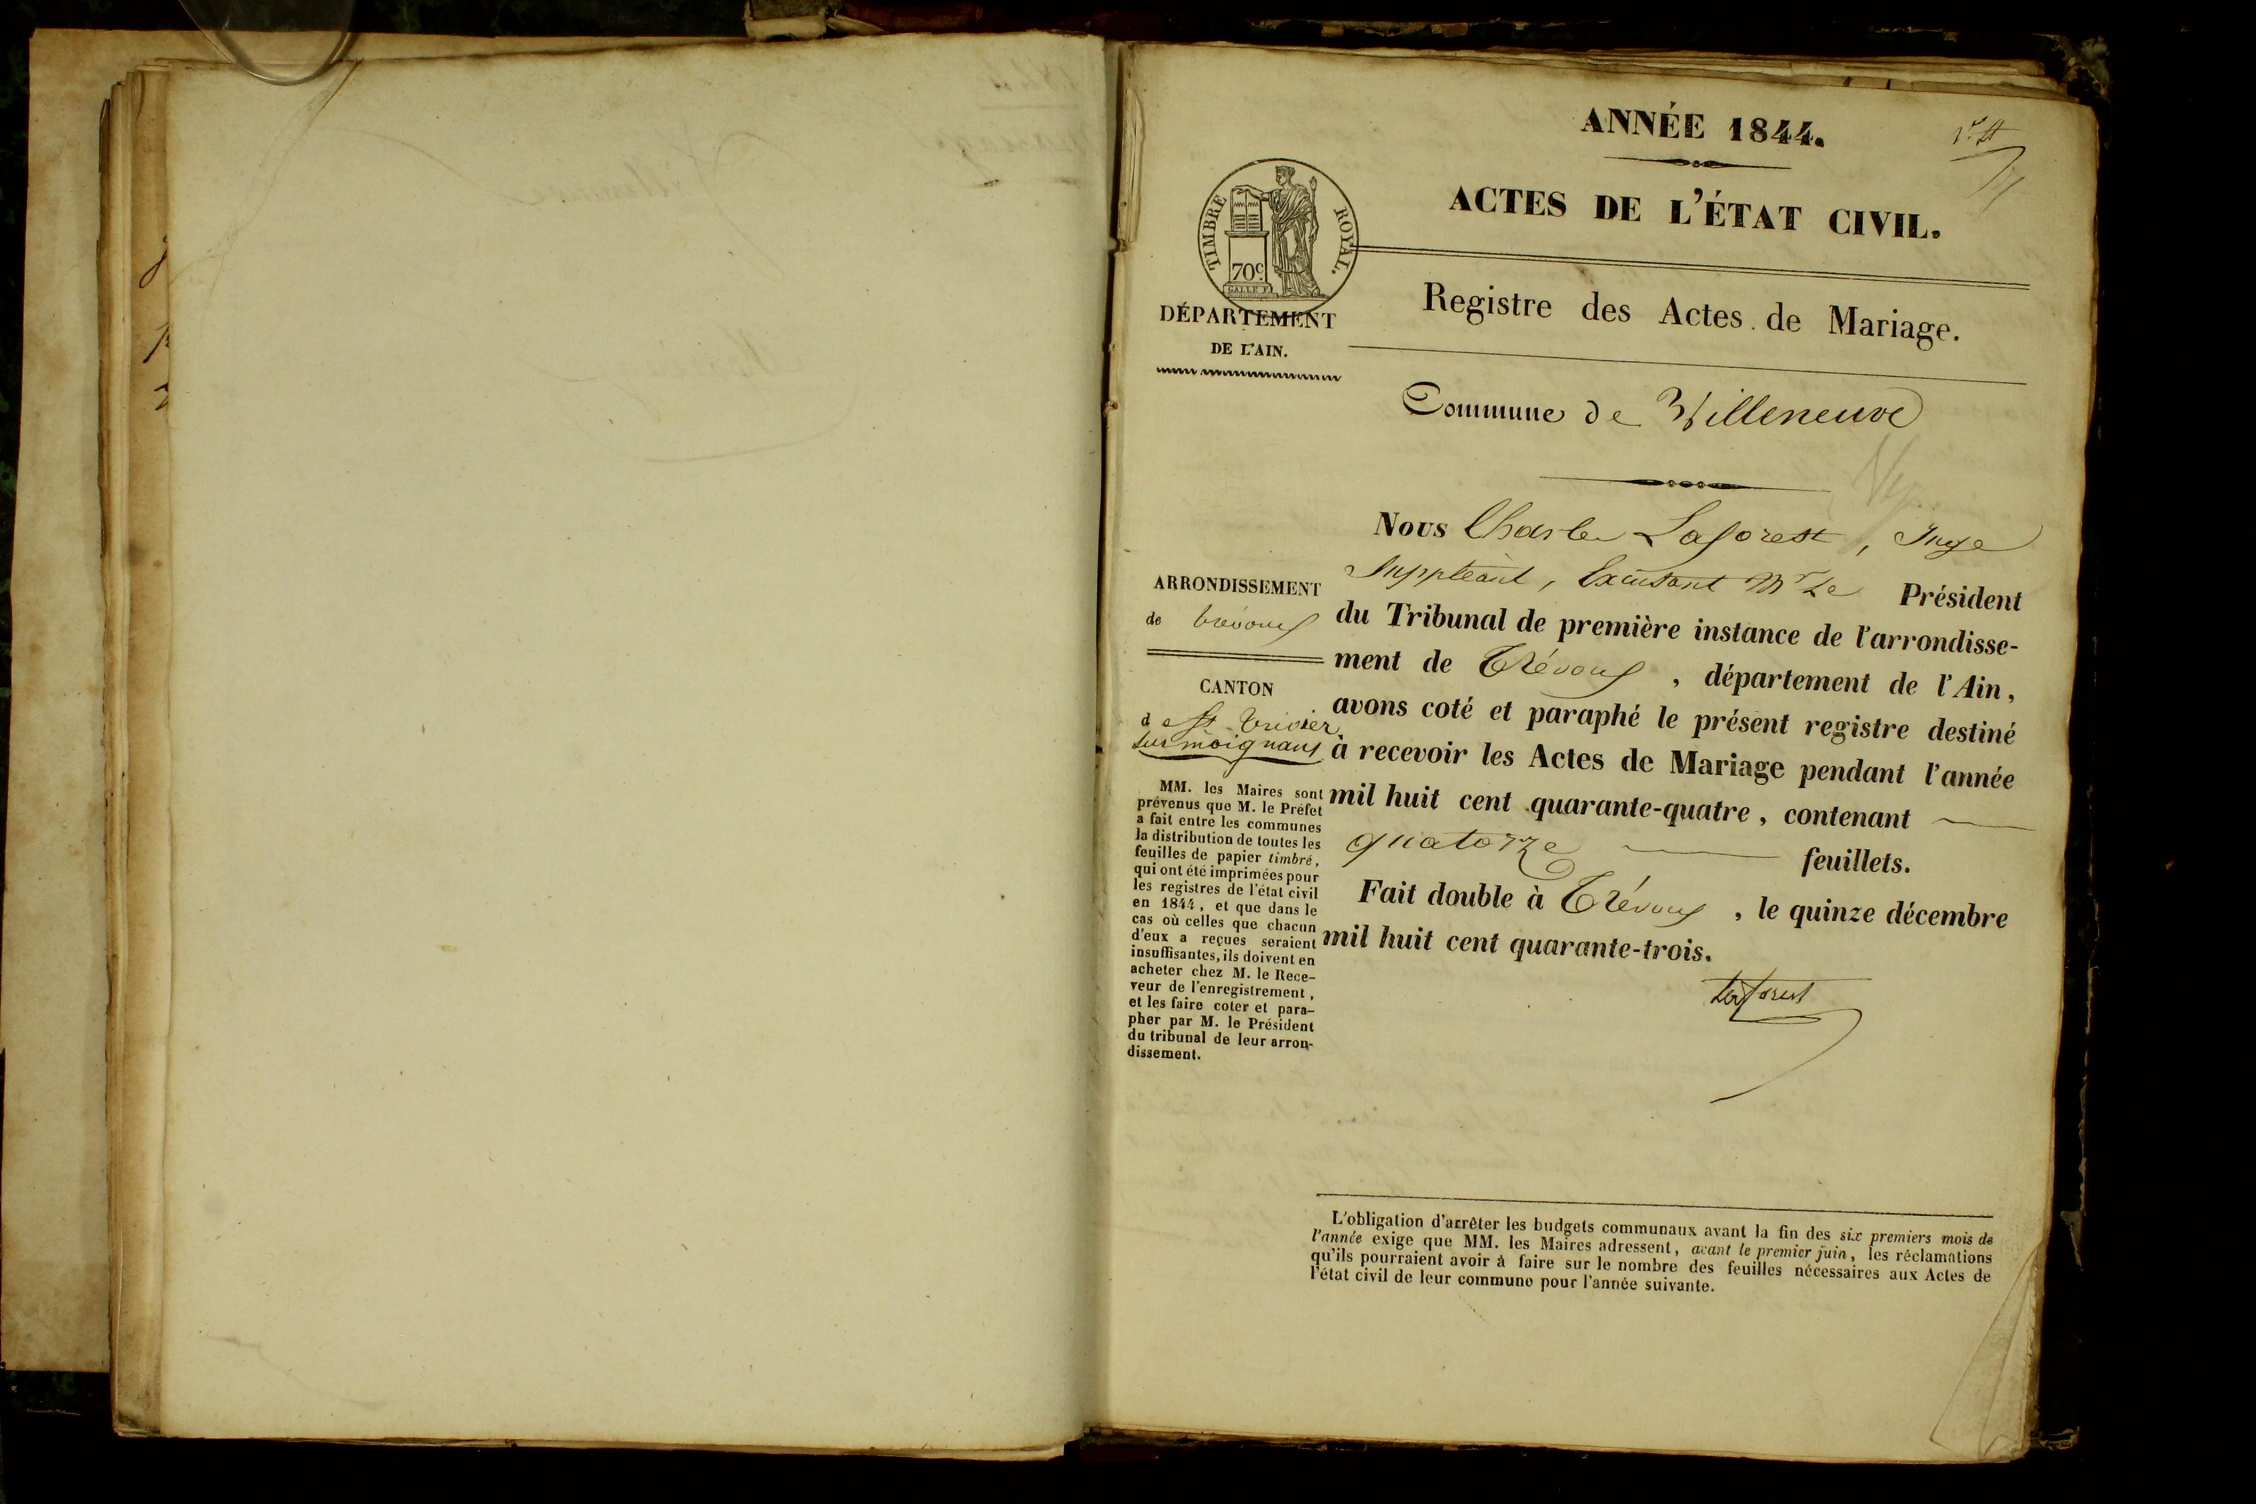 ANNÉE 1844.
ACTES DE L'ÉTAT CIVIL.
TIMBRE ROYAL.
70c.
GALLE F.
DÉPARTEMENT
DE L'AIN.
Registre des Actes de Mariage.
Commune de Villeneuve
ARRONDISSEMENT
de trévoux
CANTON
de St trivier
sur moignans
MM. les Maires sont
prévenus que M. le Préfet
a fait entre les communes
la distribution de toutes les
feuilles de papier timbré,
qui ont été imprimées pour
les registres de l'état civil
en 1844, et que dans le
cas où celles que chacun
d'eux a reçues seraient
insuffisantes, ils doivent en
acheter chez M. le Rece-
veur de l'enregistrement,
et les faire coter et para-
pher par M. le Président
du tribunal de leur arron-
dissement.
Nous Charles Laforest, Juge
Suppléant, Excusant Mr Le Président
du Tribunal de première instance de l'arrondisse-
ment de Trévoux, département de l'Ain,
avons coté et paraphé le présent registre destiné
à recevoir les Actes de Mariage pendant l'année
mil huit cent quarante-quatre, contenant
quatorze feuillets.
Fait double à Trévoux, le quinze décembre
mil huit cent quarante-trois.
Laforest
L'obligation d'arrêter les budgets communaux avant la fin des six premiers mois de
l'année exige que MM. les Maires adressent, avant le premier juin, les réclamations
qu'ils pourraient avoir à faire sur le nombre des feuilles nécessaires aux Actes de
l'état civil de leur commune pour l'année suivante.